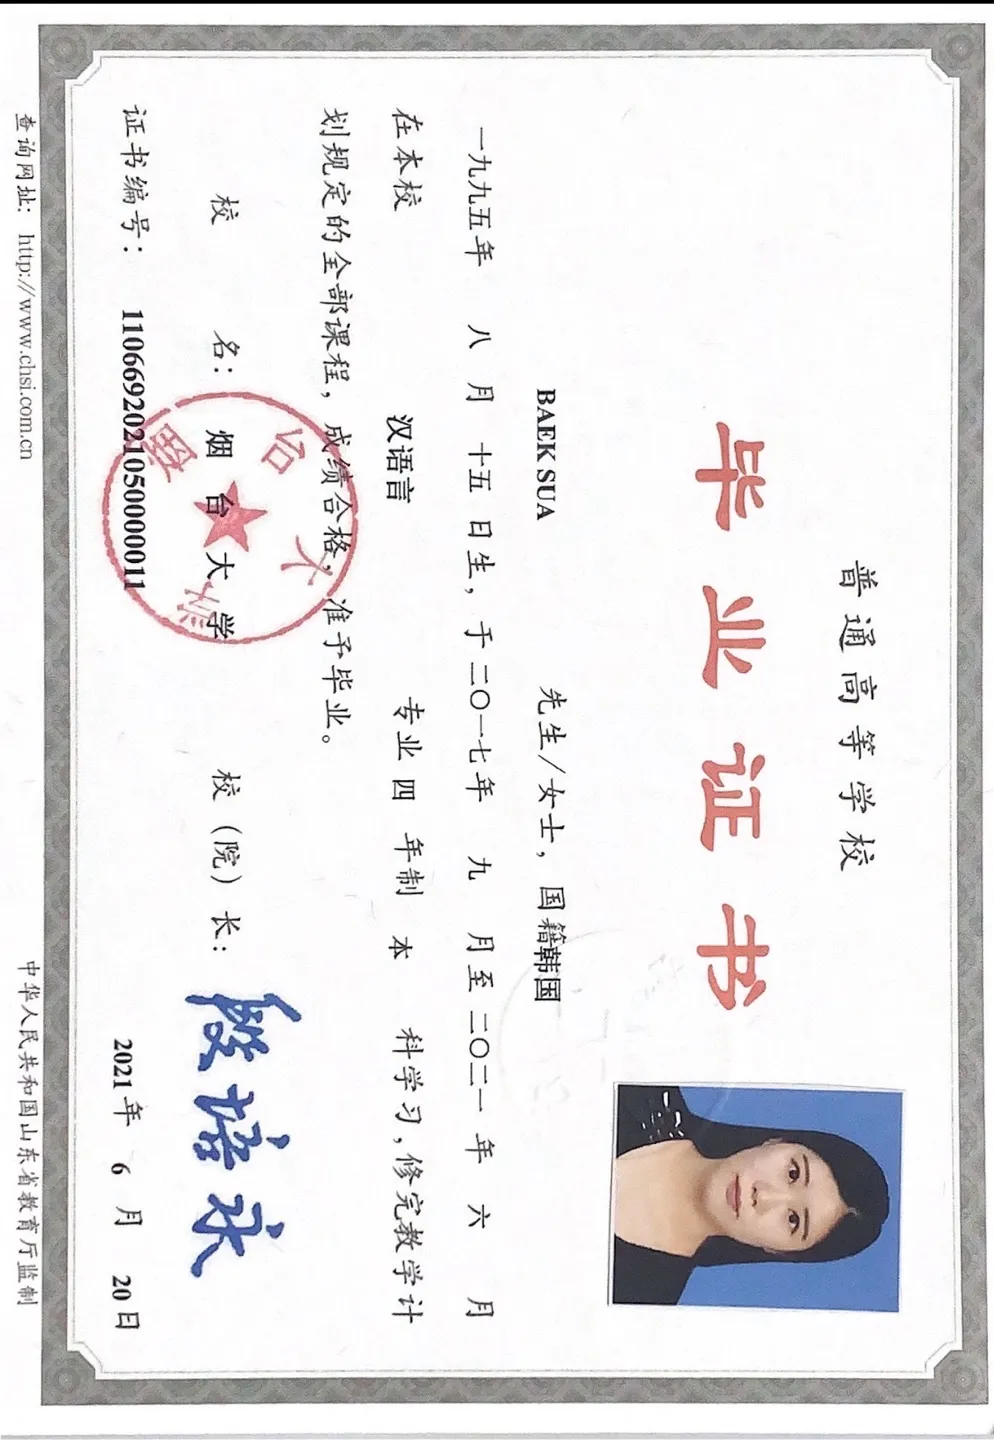 普通高等学校
毕业证书
BAEK SUA 先生/女士，国籍韩国
一九九五年 八 月 十五 日生，于二〇一七年 九 月至二〇二一 年 六 月
在本校 汉语言 专业 四 年制 本 科学习，修完教学计
划规定的全部课程，成绩合格，准予毕业。
校 名：烟台大学 校（院）长：段培永
烟台大学
证书编号： 110669202105000011 2021 年 6 月 20 日
查询网址：http://www.chsi.com.cn 中华人民共和国山东省教育厅监制